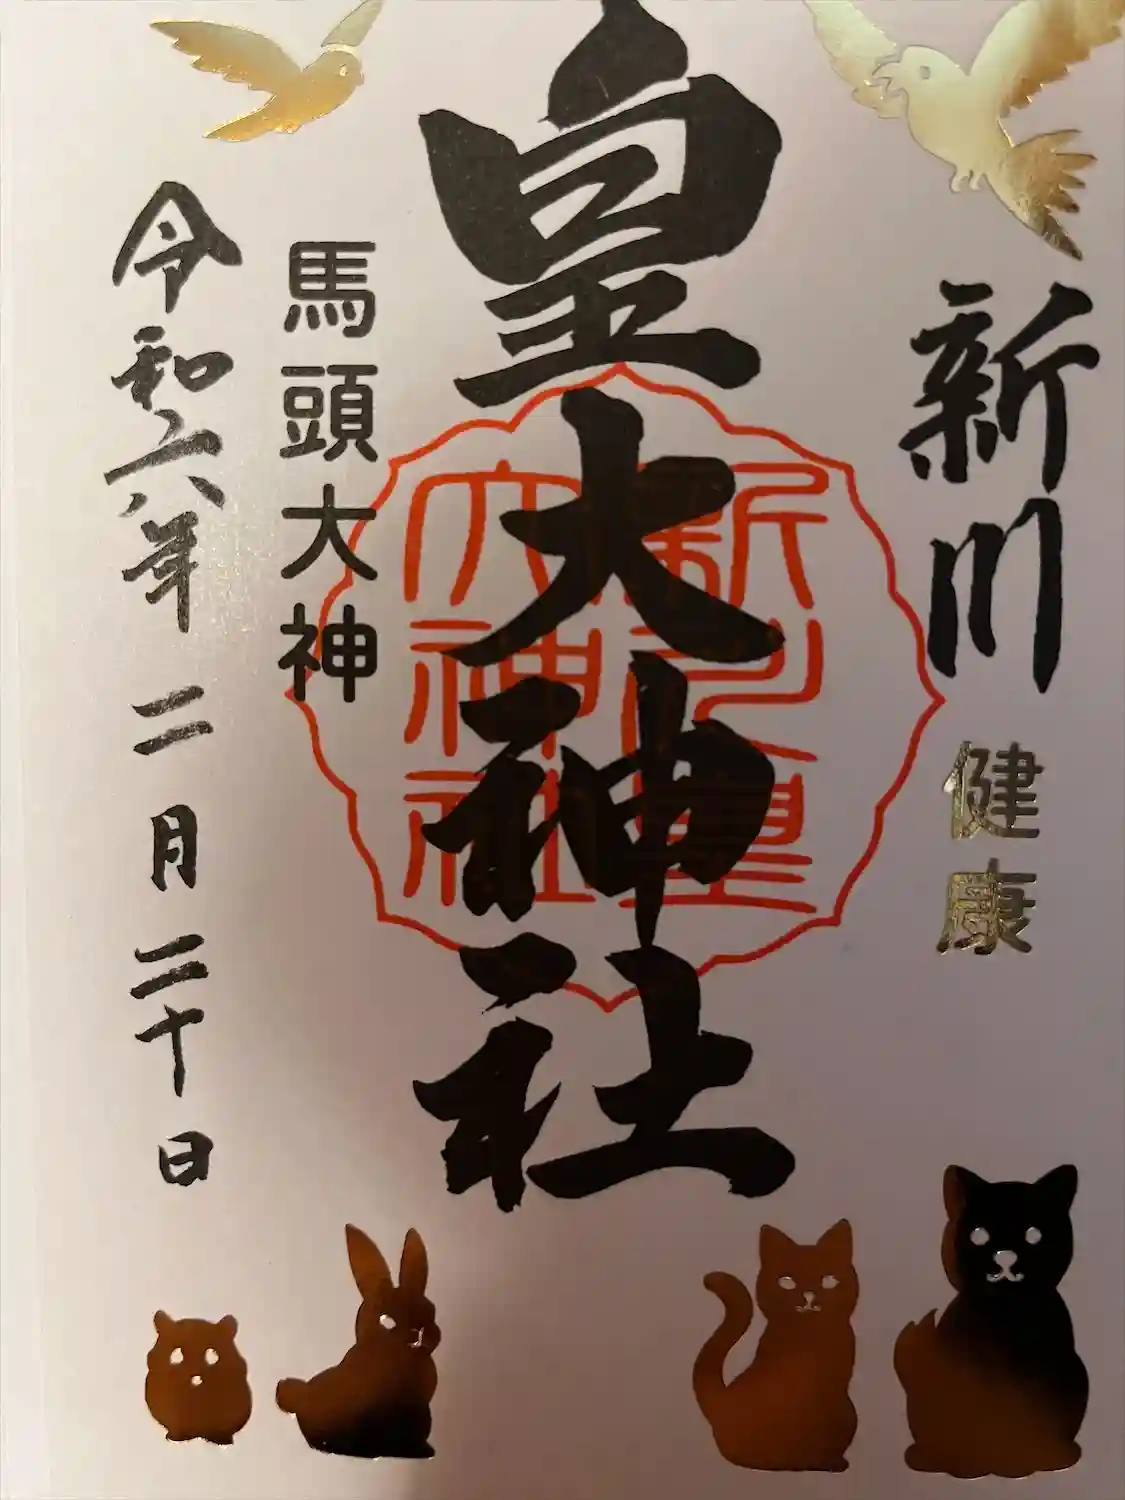 新川 健康
皇大神社
新川皇
大神社
馬頭大神
令和六年 二月 二十日